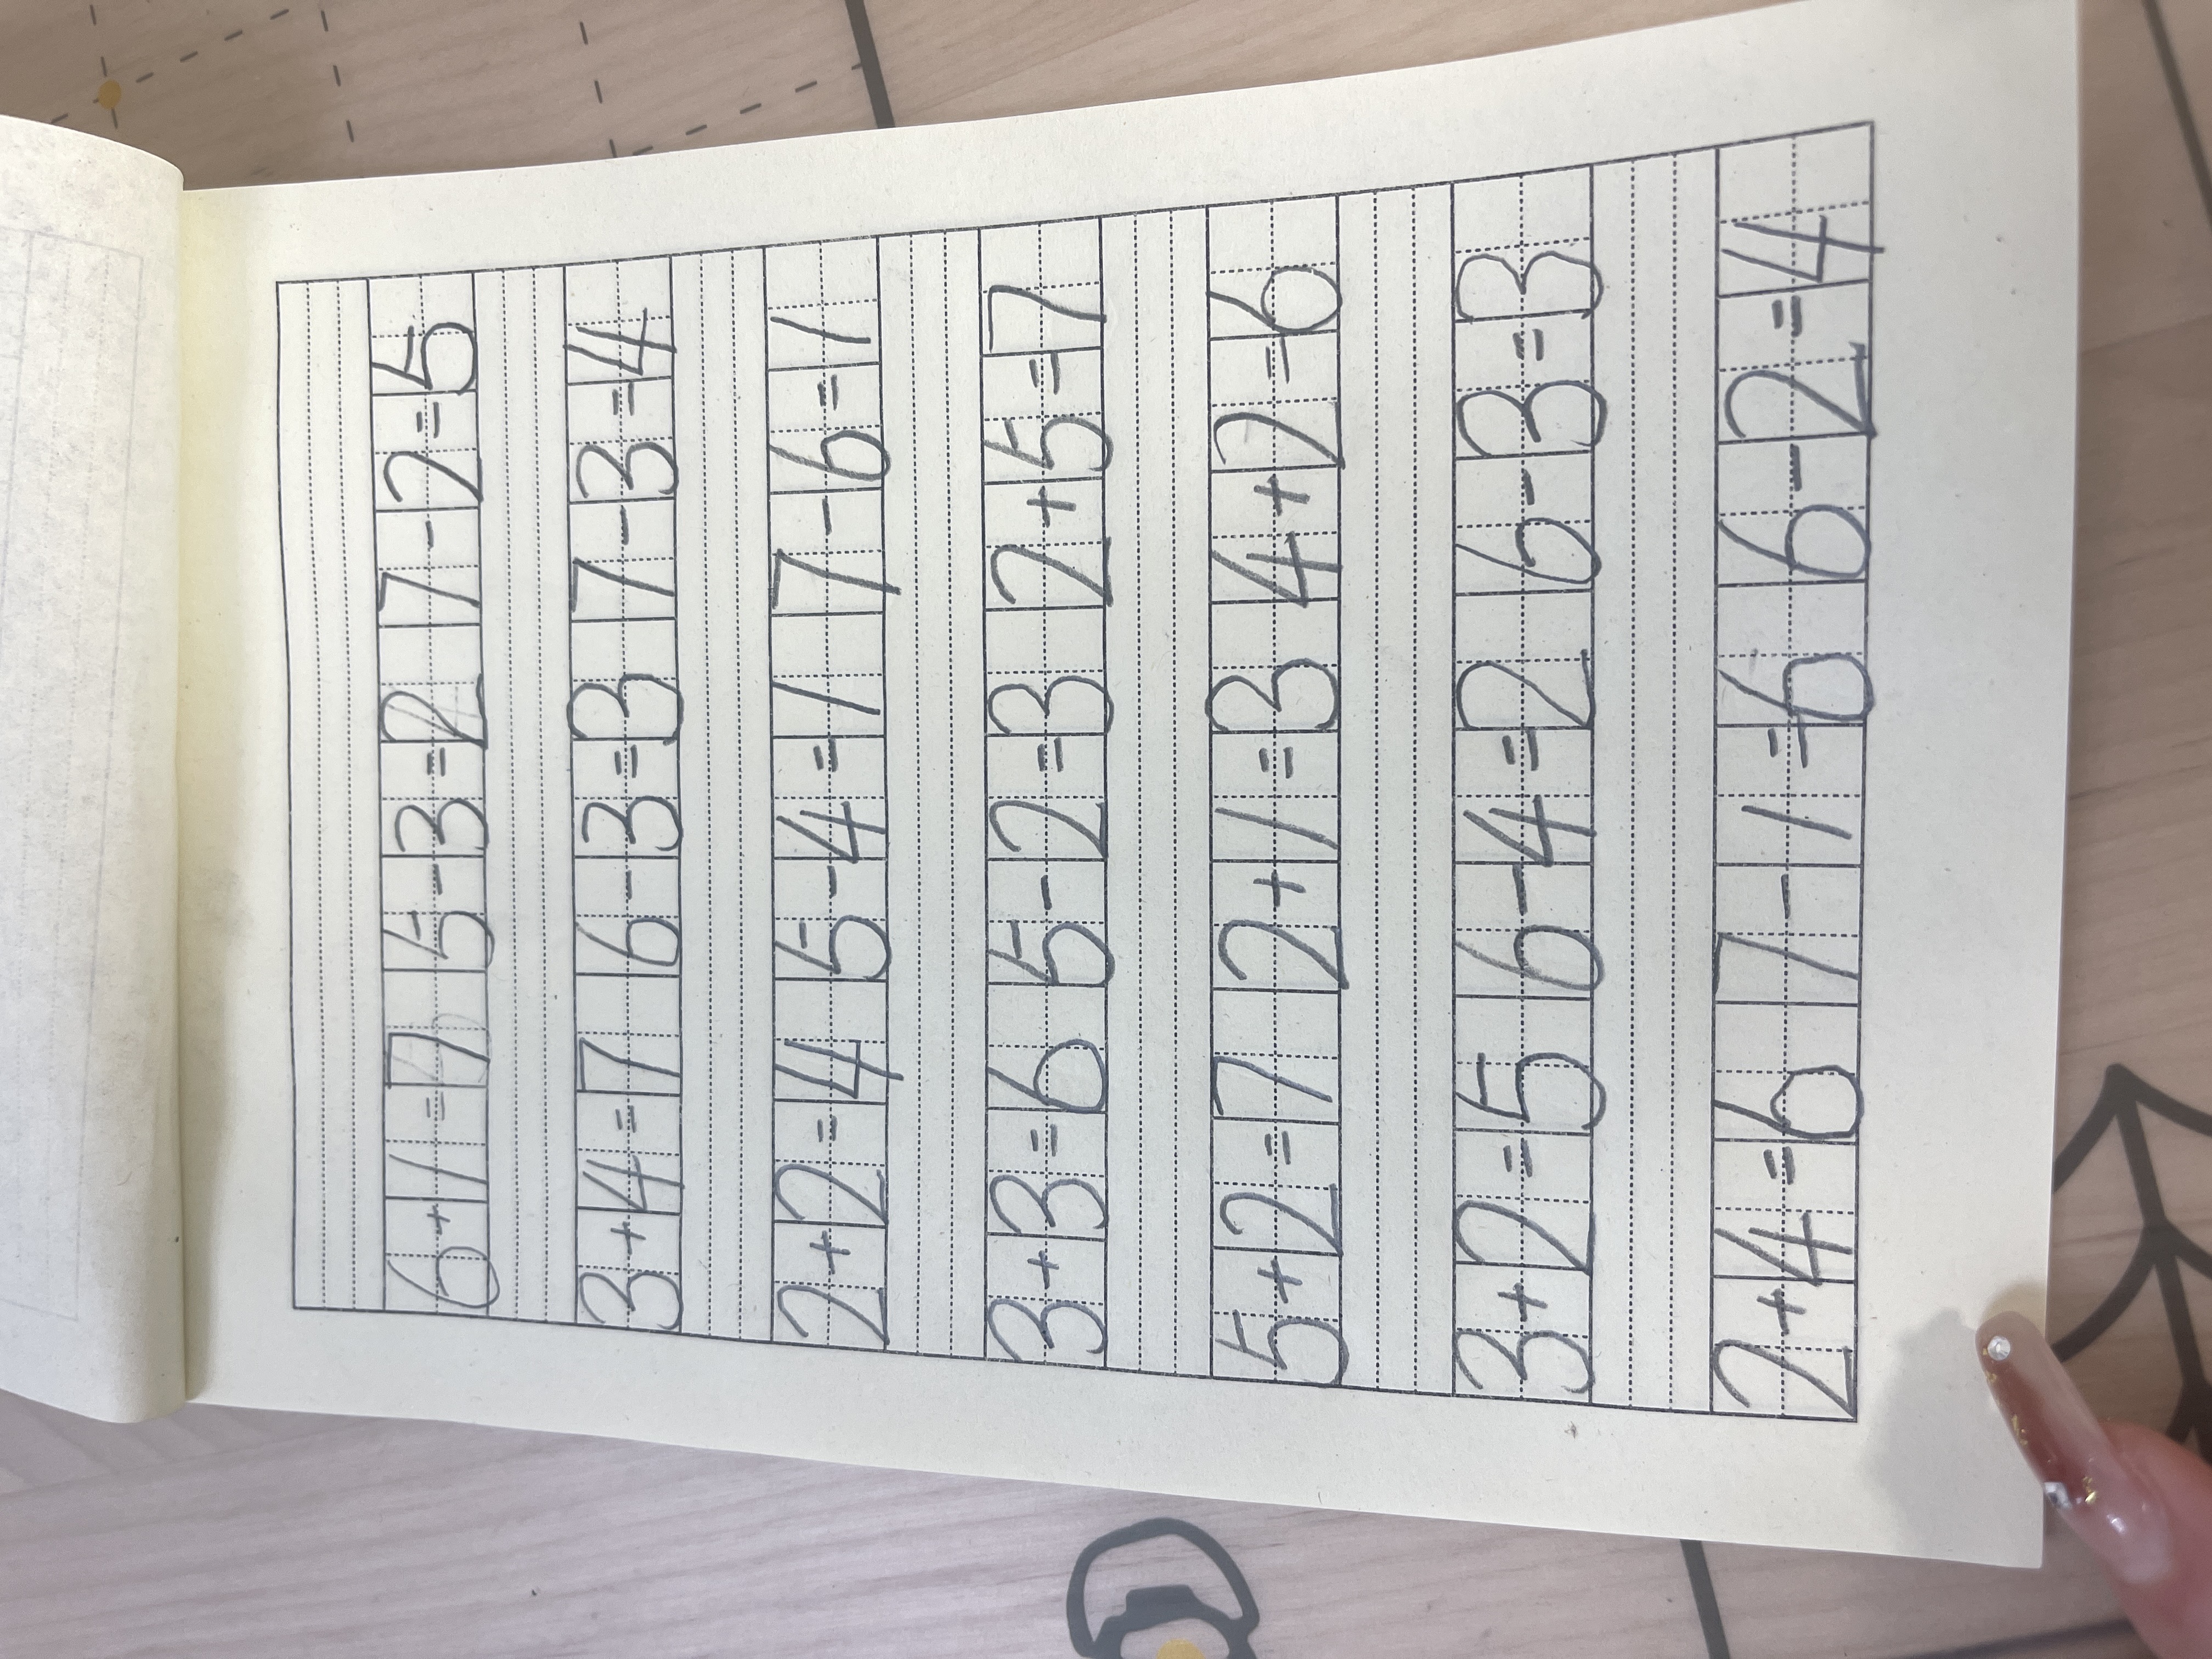 6+1=7 5-3=2 7-2=5
3+4=7 6-3=3 7-3=4
2+2=4 5-4=1 7-6=1
3+3=6 5-2=3 2+5=7
5+2=7 2+1=3 4+2=6
3+2=5 6-4=2 6-3=3
2+4=6 7-1=6 6-2=4